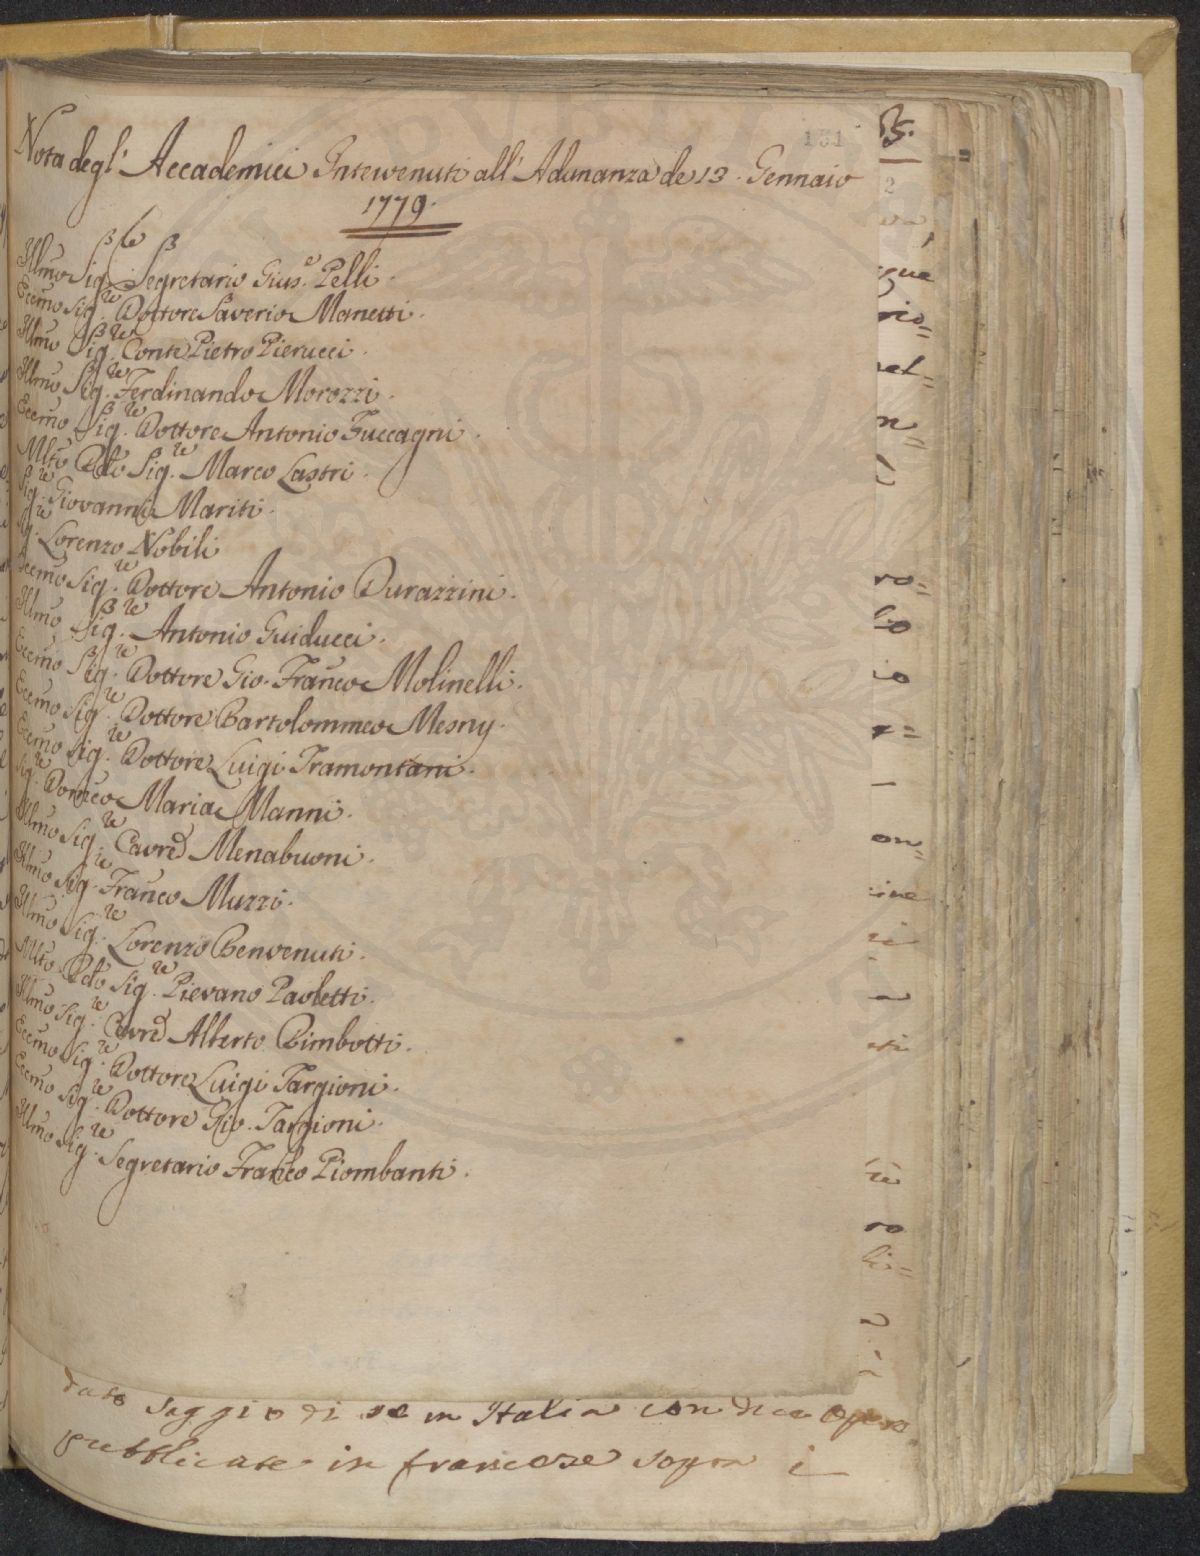 131
Nota degl' Accademici Intervenuti all' Adunanza de 13. Gennaio
1779.
Illmo Sig.re Segretario Gius.e Pelli.
Eccmo Sig.re Dottore Saverio Manetti.
Illmo Sig.re Conte Pietro Pierucci.
Illmo Sig.re Ferdinando Morozzi.
Eccmo Sig.re Dottore Antonio Zuccagni.
Mlto Rdo Sig.re Marco Lastri.
Sig.re Giovanni Mariti.
Sig.re Lorenzo Nobili
Eccmo Sig.re Dottore Antonio Durazzini.
Illmo Sig.re Antonio Guiducci.
Eccmo Sig.re Dottore Gio. Franco Molinelli.
Eccmo Sig.re Dottore Bartolommeo Mesny.
Eccmo Sig.re Dottore Luigi Tramontani.
Sig.re Domco Maria Manni.
Illmo Sig.re Cavre Menabuoni.
Illmo Sig.re Franco Muzzi.
Illmo Sig.re Lorenzo Benvenuti.
Mlto Rdo Sig.re Pievano Paoletti.
Illmo Sig.re Cavre Alberto Rimbotti.
Eccmo Sig.re Dottore Luigi Targioni.
Eccmo Sig.re Dottore Gio. Targioni.
Illmo Sig.re Segretario Franco Piombanti.
dato saggio di se in Italia con due opere
pubblicate in francese sopra i